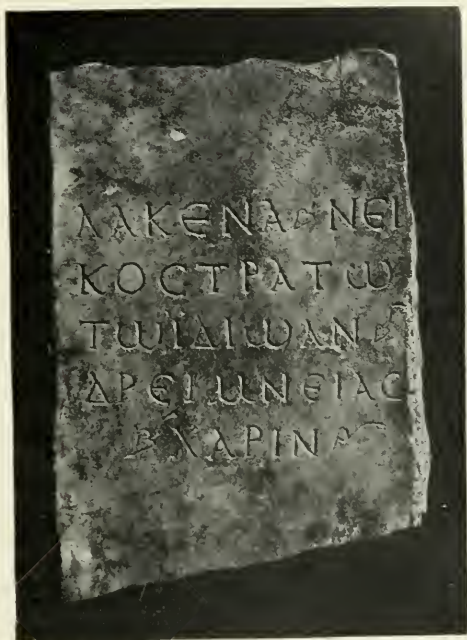 ΛΑΚΕΝΑ ΝΕΙ
ΚΟϹΤΡΑΤω
ΤωΙΔΙωΑΝ
ΔΡΕΙωΝΕΙΑϹ
ΒΛΑΡΙΝ